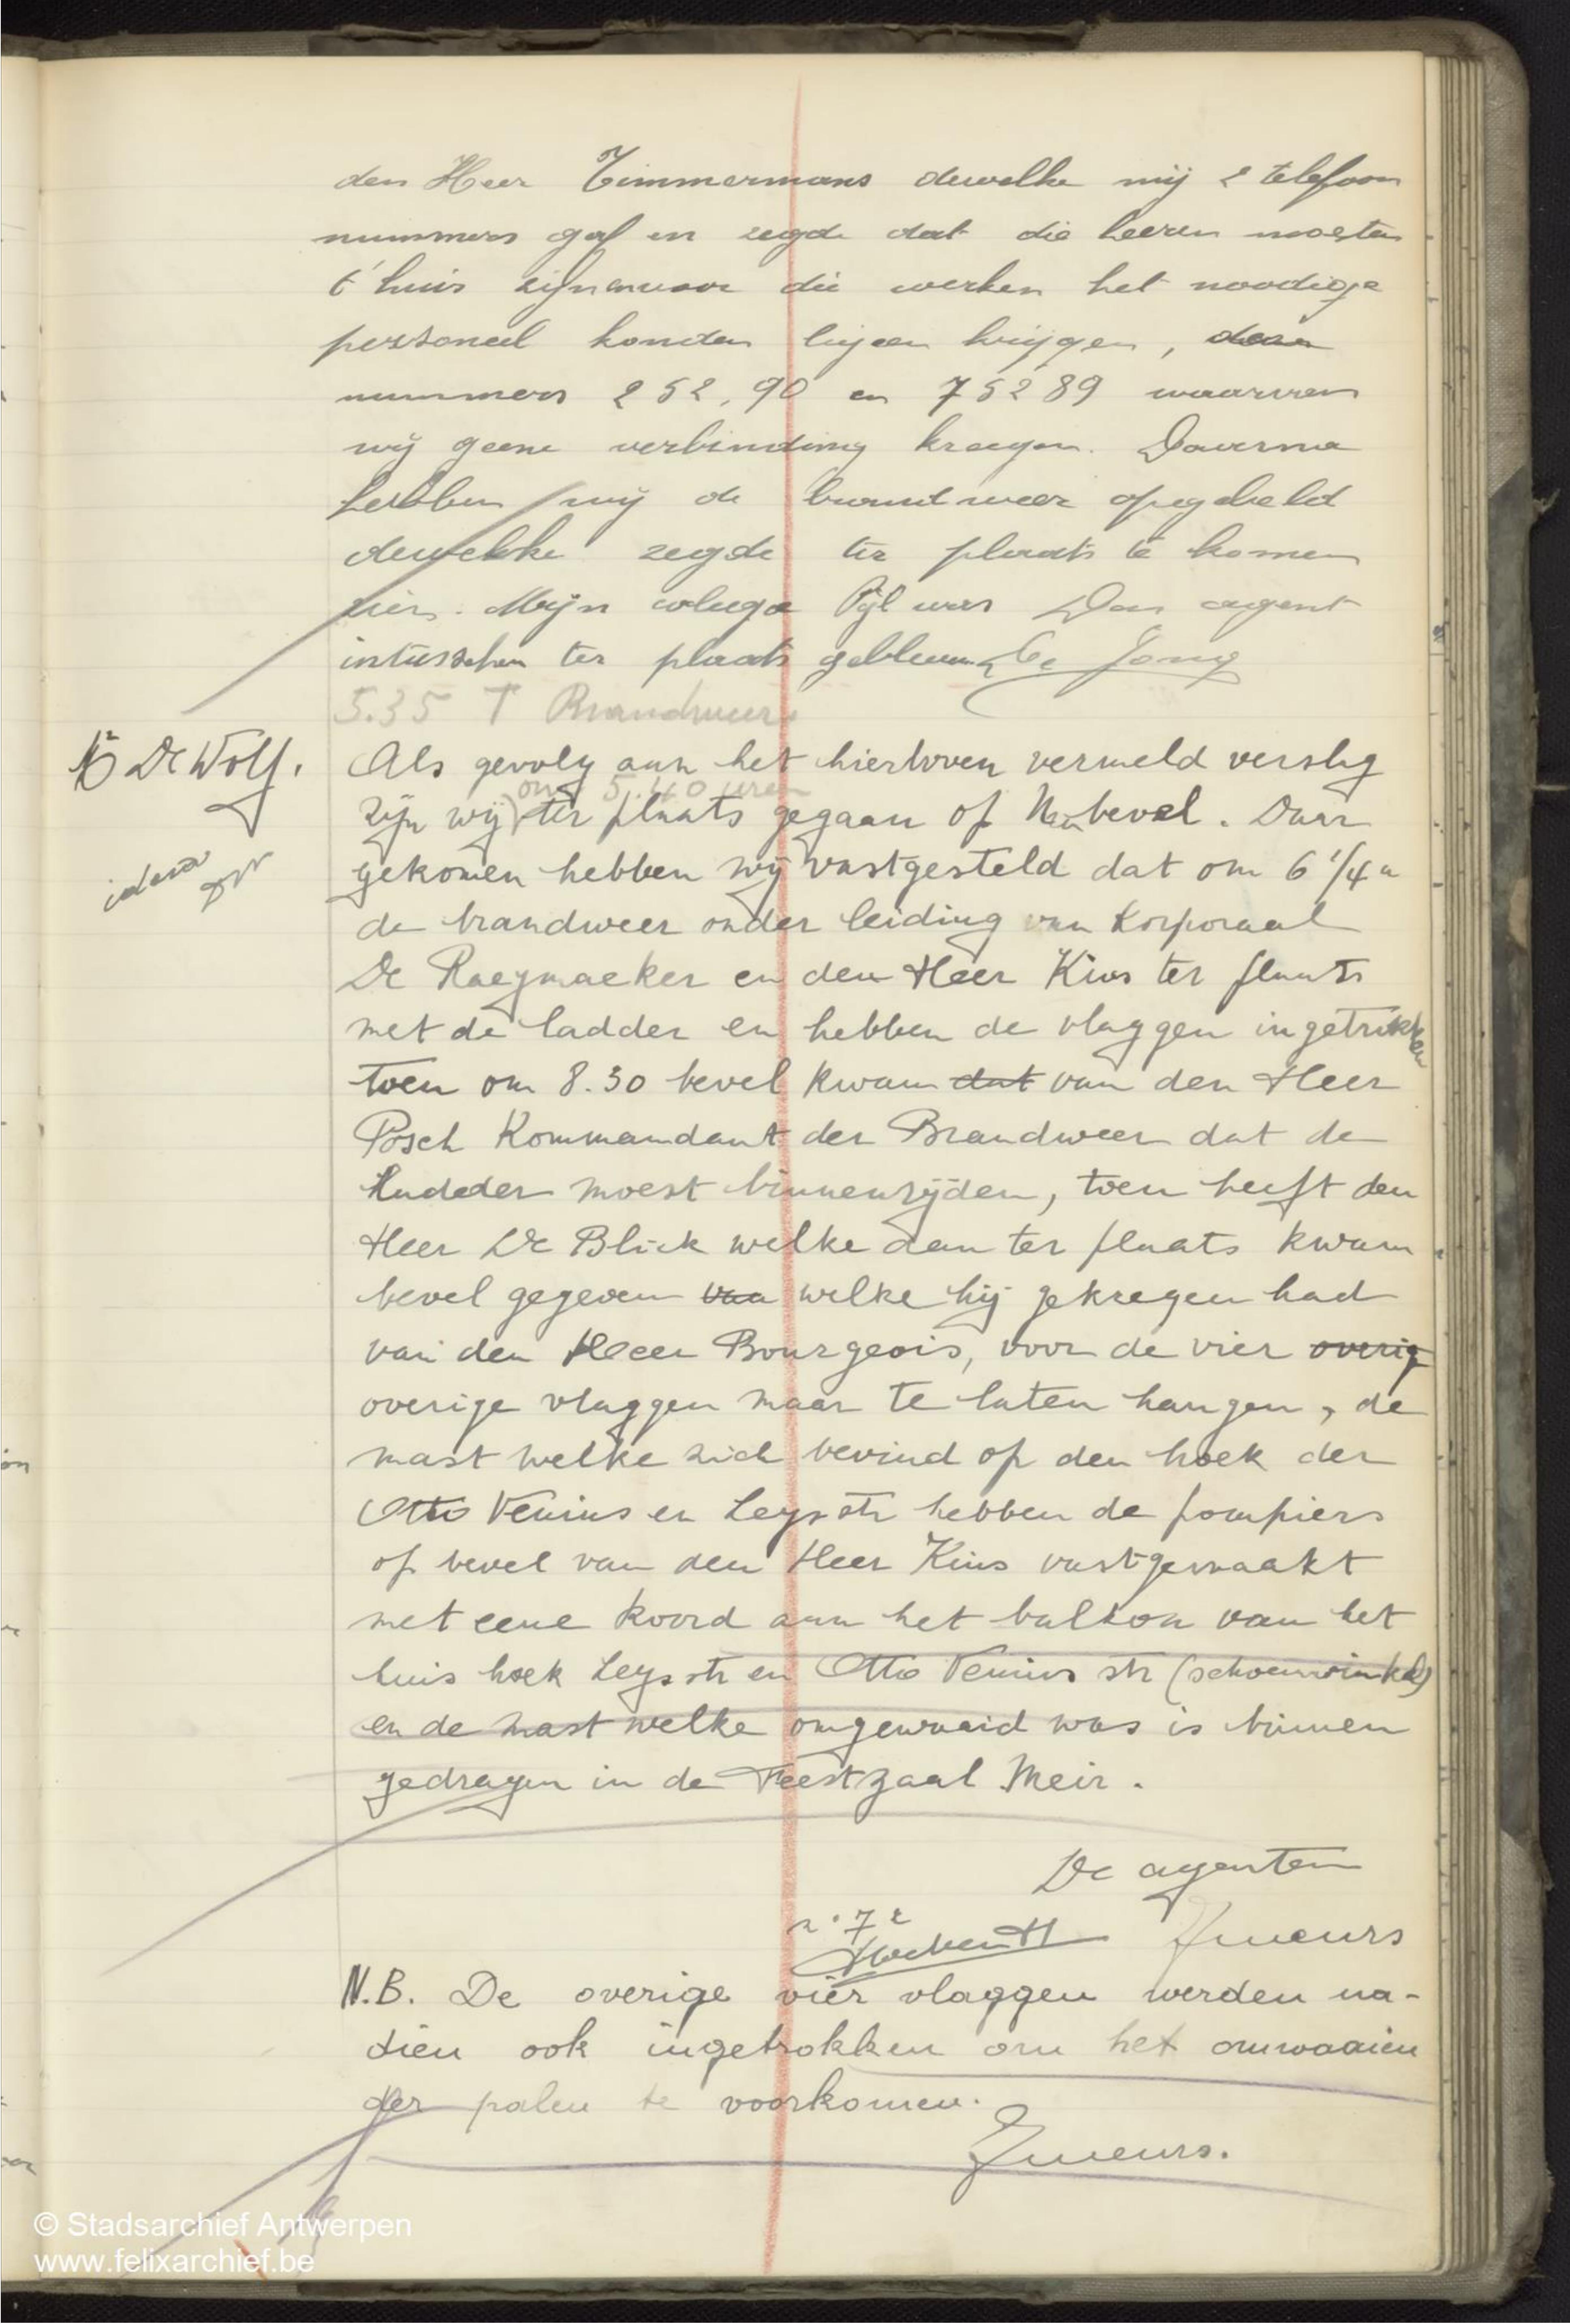 den Heer Timmermans dewelke mij 2 telefoon
nummers gaf en zegde dat die heeren moesten
t'huis zijn die werken het noodige
personeel konden bijeen krijgen, deze
nummers 252.90 en 75289 waarvan
wij geene verbinding kregen. Daarna
hebben wij de brandweer opgebeld
dewelke zegde ter plaats te komen
zien. Mijn collega Pijl was Den agent
intusschen ter plaats gebleven De Jong
5.35 T Brandweer
De Wolf.
Als gevolg aan het hierboven vermeld verslag
om 5.40 uren
zijn wij ter plaats gegaan op bevel. Daar
gekomen hebben wij vastgesteld dat om 6 1/4 u
de brandweer onder leiding van Korporaal
De Raeymaeker en den Heer Kius ter plaats
met de ladder en hebben de vlaggen ingetrokken
toen om 8.30 bevel kwam dat van den Heer
Posch Kommandant der Brandweer dat de
ladder moest binnenrijden, toen heeft den
Heer De Blick welke dan ter plaats kwam
bevel gegeven van welke hij gekregen had
van den Heer Bourgeois, voor de vier overig
overige vlaggen maar te laten hangen, de
mast welke zich bevind op den hoek der
Otto Venius en Leysstr hebben de pompiers
op bevel van den Heer Kius vastgemaakt
met eene koord aan het balkon van het
huis hoek Leysstr en Otto Venius str (schoenwinkel)
en de mast welke omgewaaid was is binnen
gedragen in de Feestzaal Meir.
De agenten
N.B. De overige vier vlaggen werden na-
dien ook ingetrokken om het omwaaien
der palen te voorkomen.
© Stadsarchief Antwerpen
www.felixarchief.be